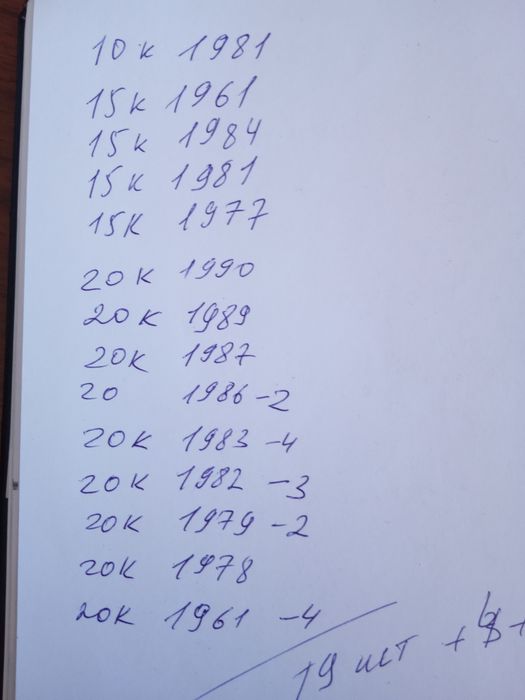 10 к 1981
15к 1961
15к 1984
15к 1981
15К 1977
20 к 1990
20 к 1989
20к 1987
20 1986 -2
20к 1983 -4
20 к 1982 -3
20к 1979 -2
20к 1978
20к 1961 -4
19 шт +